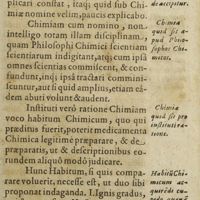 plicari constat, itaqi quid sub Chi-
miæ nomine velim, paucis explicabo.
Chimiam cum nomino, non
intelligo totam illam disciplinam,
quam Philosophi Chimici scientiam
scientiarum indigitant, atqi cum ipsa
omnes scientias commiscent, & con-
fundunt, inqi ipsà tractari commini-
scuntur, aut si quid amplius, etiam câ-
dem abuti volunt & audent.
Instituti verò ratione Chimiam
voco habitum Chimicum, quo qui
præditus fuerit, potest medicamenta
Chimica legitime præparare, & de
præparatis, ut & descriptionibus eo-
rundem aliquô modô judicare.
Hunc Habitum, si quis compa-
rare voluerit, necesse est, ut duo sibi
proponat indaganda. I. Ignis gradus,
accipitur.
Chimia
quid sit a-
pud Philo-
sophos Chi-
micos.
Chimia
quid sit pro
instituti ra-
tione.
Habitũ Chi-
micum ac-